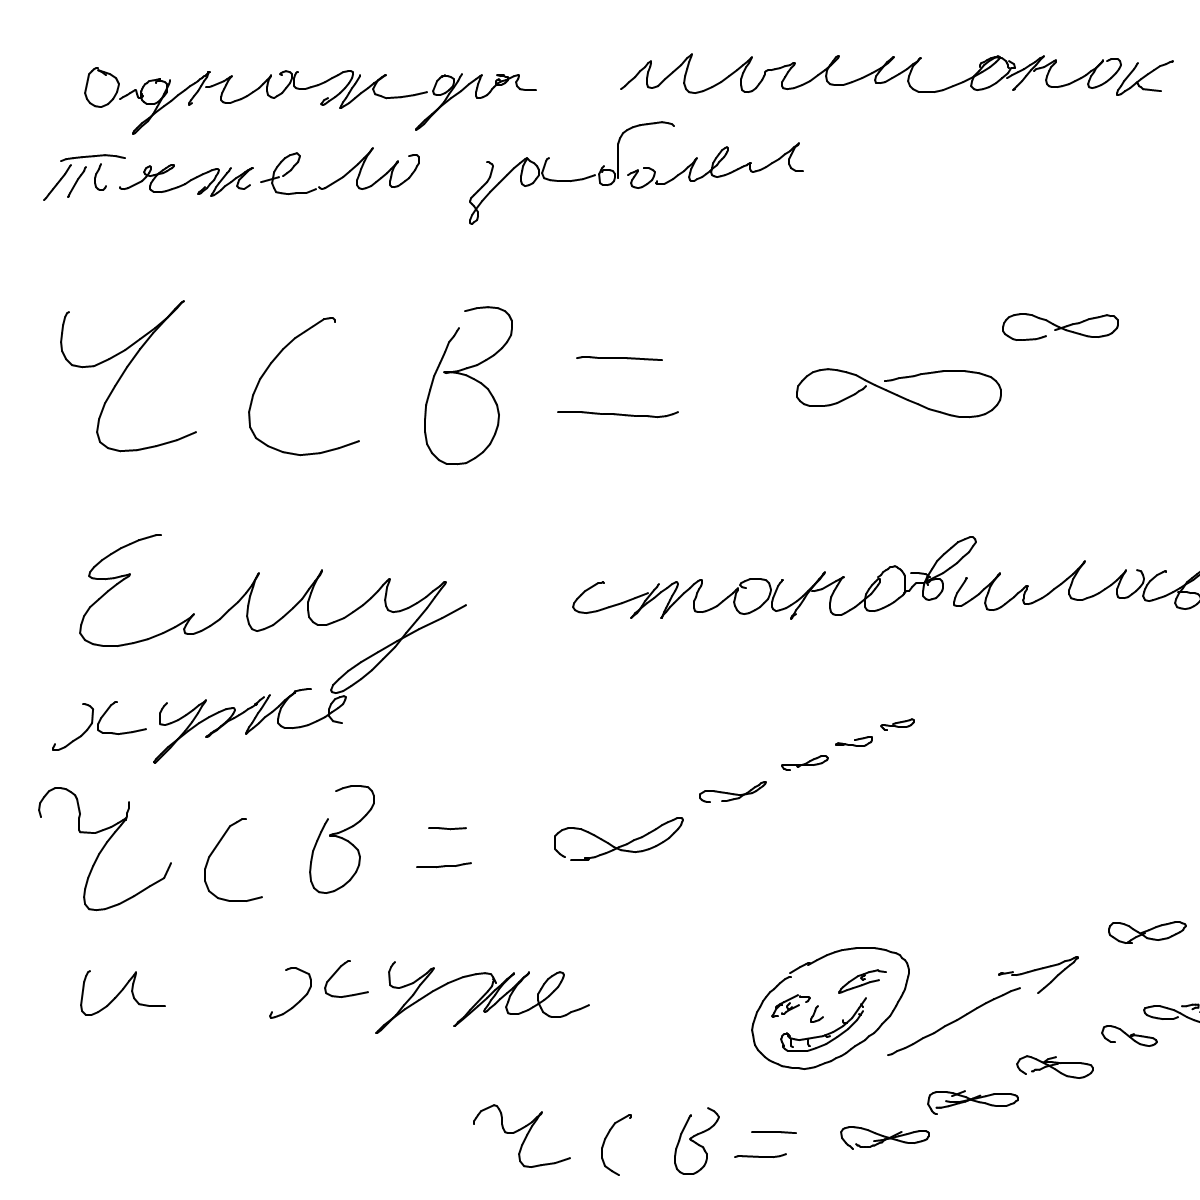 однажды мышонок
тяжело заболел
ЧСВ = ∞^∞
Ему становилось
хуже
ЧСВ = ∞^∞^∞^∞^∞
и хуже
ЧСВ = ∞^∞^∞^∞^∞ → ∞